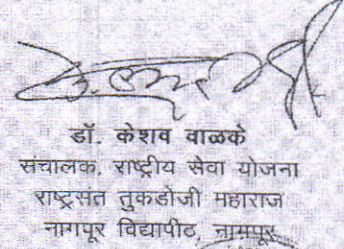 डॉ. केशव वाळके
संचालक, राष्ट्रीय सेवा योजना
राष्ट्रसंत तुकडोजी महाराज
नागपूर विद्यापीठ, नागपूर